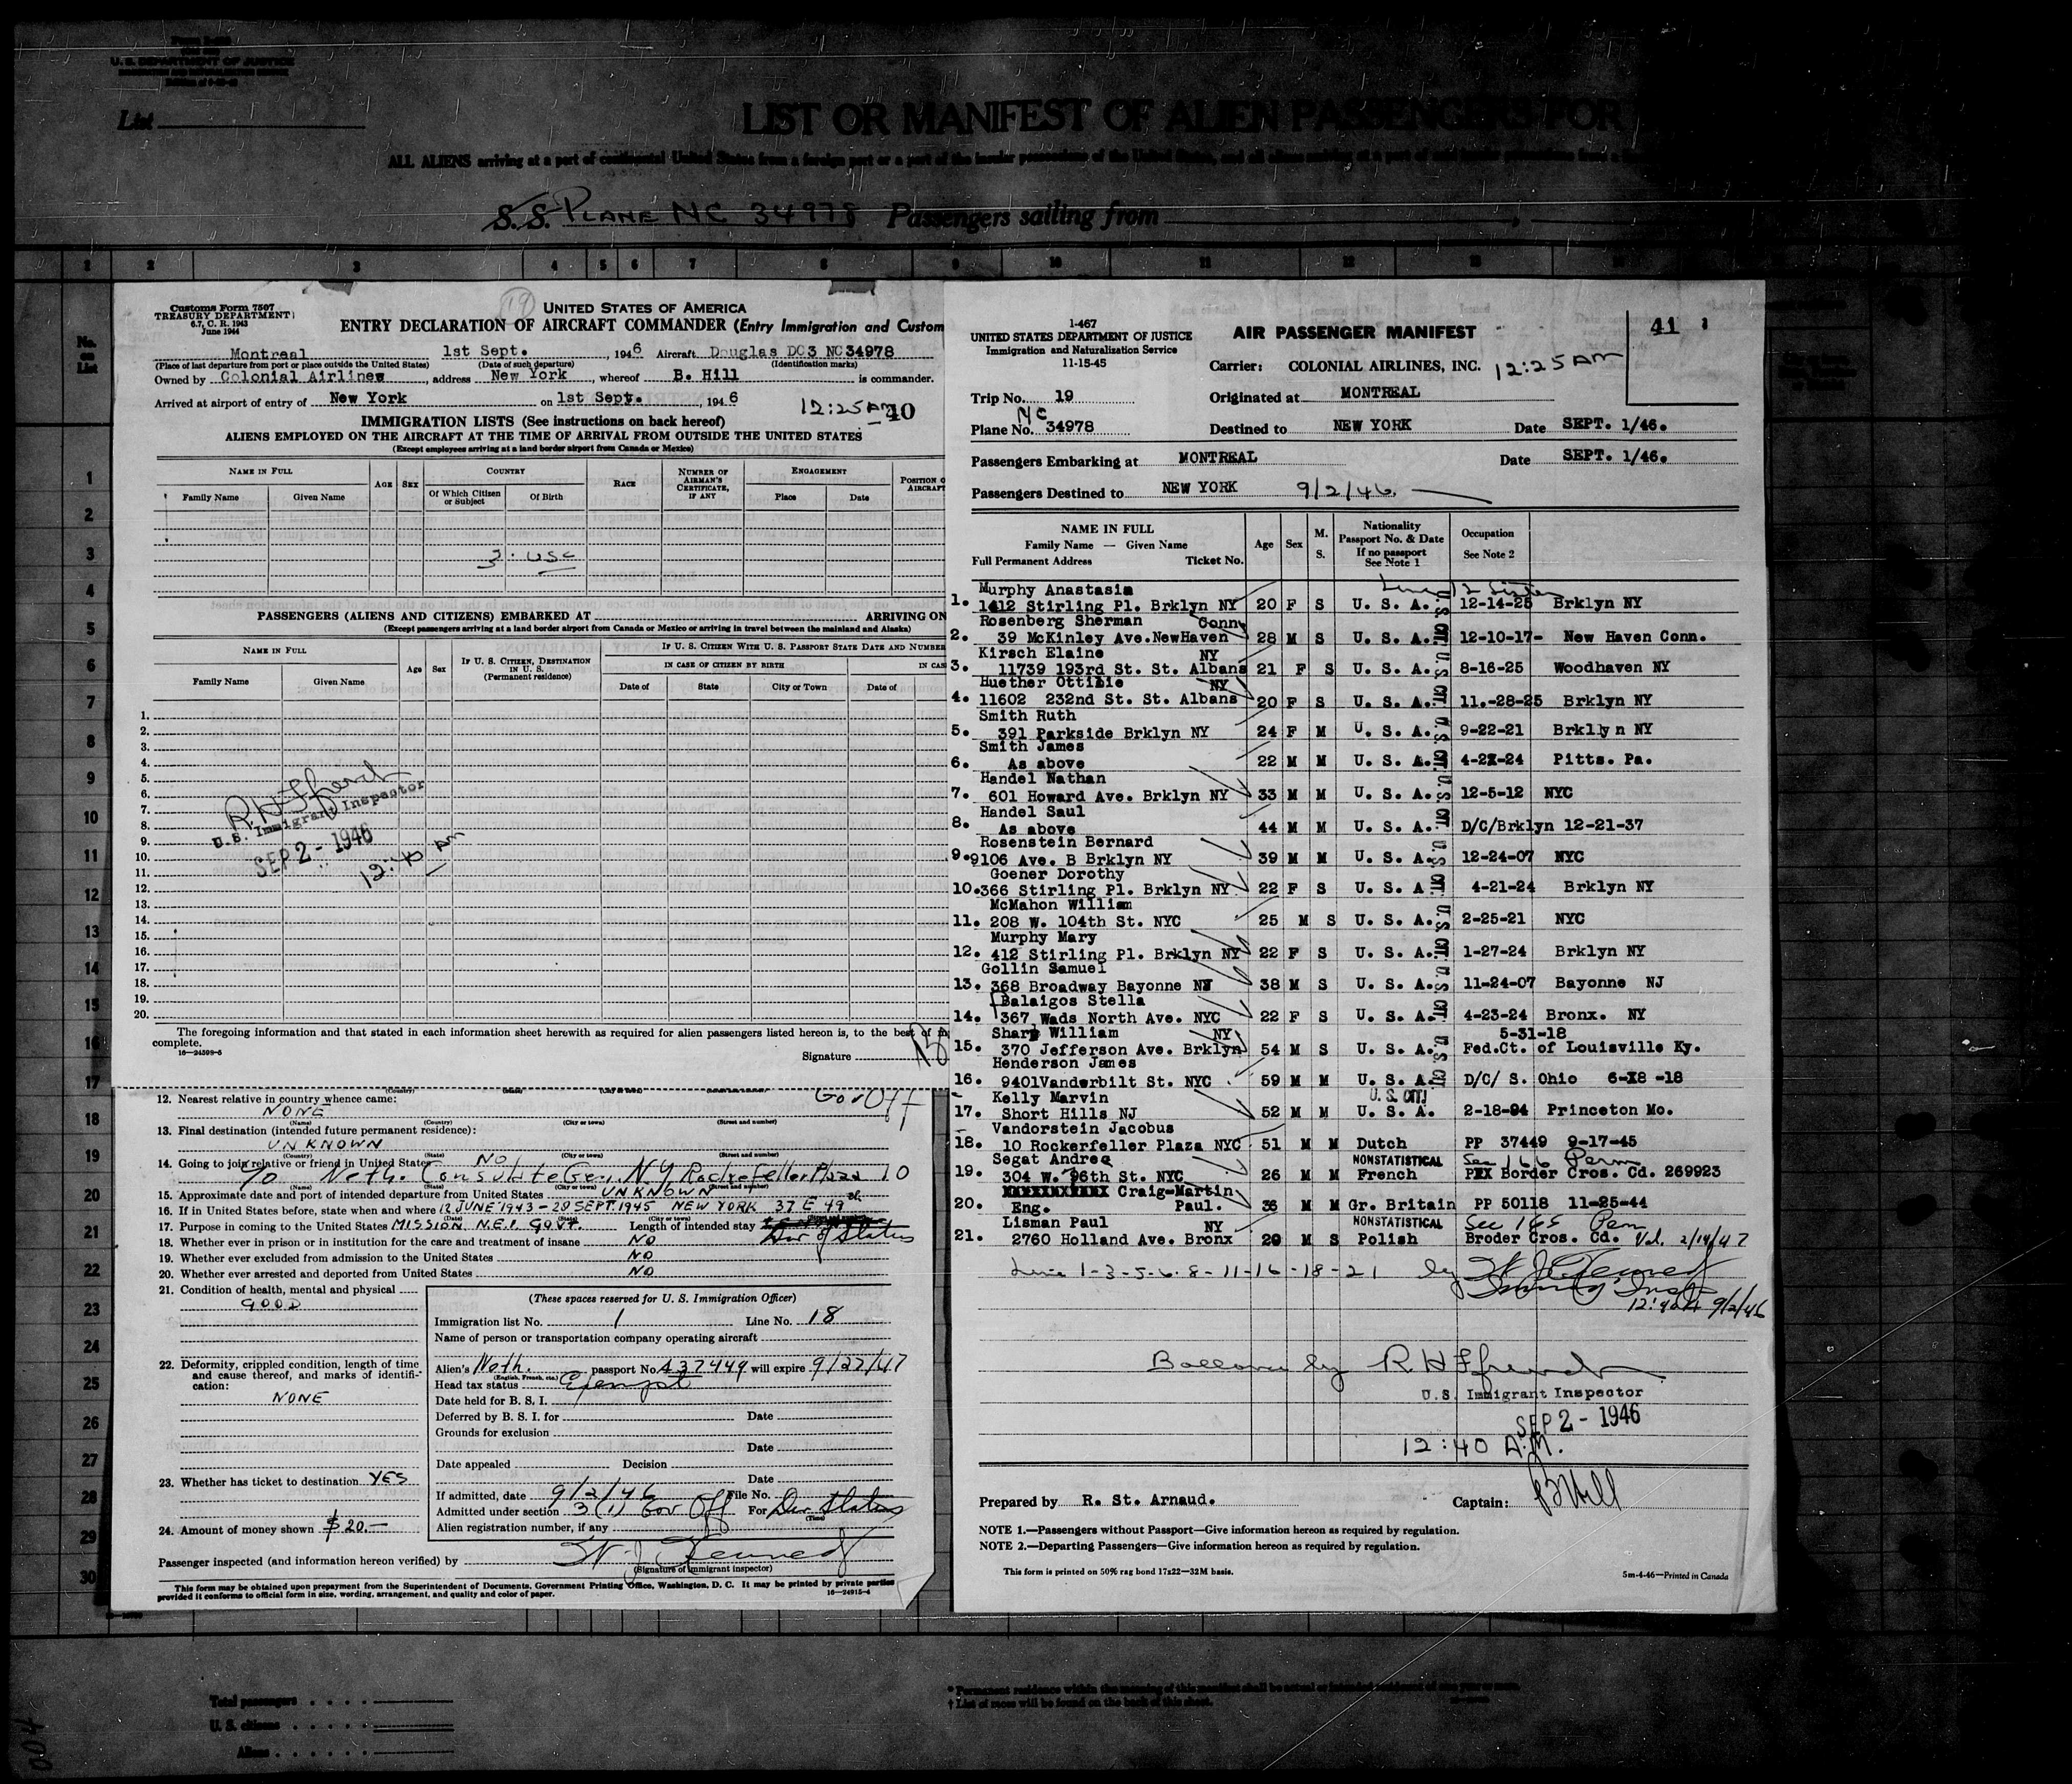 U. S. DEPARTMENT OF JUSTICE
List
LIST OR MANIFEST OF ALIEN PASSENGERS FOR
ALL ALIENS arriving at a port of continental United States from a foreign port or a port of the insular possessions of the United States, and all aliens
S. S. PLANE NC 34978 Passengers sailing from
1 2 3 4 5 6 7 8 9 10 11 12 13
No. on List
1
2
3
4
5
6
7
8
9
10
11
12
13
14
15
16
17
18
19
20
21
22
23
24
25
26
27
28
29
30
Customs Form 7507
TREASURY DEPARTMENT
6.7, C. R. 1943
June 1944
19
UNITED STATES OF AMERICA
ENTRY DECLARATION OF AIRCRAFT COMMANDER (Entry Immigration and Custom
Montreal 1st Sept. , 1946 Aircraft Douglas DC3 NC34978
(Place of last departure from port or place outside the United States) (Date of such departure) (Identification marks)
Owned by Colonial Airlines, address New York, whereof B. Hill is commander.
Arrived at airport of entry of New York on 1st Sept. , 1946
12:25 AM 40
IMMIGRATION LISTS (See instructions on back hereof)
ALIENS EMPLOYED ON THE AIRCRAFT AT THE TIME OF ARRIVAL FROM OUTSIDE THE UNITED STATES
(Except employees arriving at a land border airport from Canada or Mexico)
NAME IN FULL AGE SEX COUNTRY RACE NUMBER OF AIRMAN'S CERTIFICATE, IF ANY ENGAGEMENT POSITION O AIRCRAFT
Family Name Given Name Of Which Citizen or Subject Of Birth Place Date
3. USC
PASSENGERS (ALIENS AND CITIZENS) EMBARKED AT ARRIVING ON
(Except passengers arriving at a land border airport from Canada or Mexico or arriving in travel between the mainland and Alaska)
NAME IN FULL Age Sex IF U. S. CITIZEN, DESTINATION IN U. S. (Permanent residence) IF U. S. CITIZEN WITH U. S. PASSPORT STATE DATE AND NUMBER
IN CASE OF CITIZEN BY BIRTH IN CAS
Family Name Given Name Date of State City or Town Date of
1.
2.
3.
4.
5.
6.
7.
8.
9.
10.
11.
12.
13.
14.
15.
16.
17.
18.
19.
20.
U.S. Immigrant Inspector
SEP 2 - 1946
12:40 AM
The foregoing information and that stated in each information sheet herewith as required for alien passengers listed hereon is, to the best of m
complete.
16—24598-5
Signature
12. Nearest relative in country whence came: Gov Off
NONE
(Name) (Country) (City or town) (Street and number)
13. Final destination (intended future permanent residence):
UNKNOWN
(Country) (State) (City or town) (Street and number)
14. Going to join relative or friend in United States NO
To Neth. Consulate Gen. N.Y. Rockefeller Plaza 10
(Name) (State) (City or town) (Street and number)
15. Approximate date and port of intended departure from United States UNKNOWN
16. If in United States before, state when and where 12 JUNE 1943 - 20 SEPT. 1945 NEW YORK 37 E 49 st.
(Date) (City or town) (Street and number)
17. Purpose in coming to the United States MISSION N.E.I. GOVT. Length of intended stay Dur of Status
18. Whether ever in prison or in institution for the care and treatment of insane NO
19. Whether ever excluded from admission to the United States NO
20. Whether ever arrested and deported from United States NO
21. Condition of health, mental and physical
GOOD
22. Deformity, crippled condition, length of time and cause thereof, and marks of identification:
NONE
23. Whether has ticket to destination YES
24. Amount of money shown $20.—
(These spaces reserved for U. S. Immigration Officer)
Immigration list No. 1 Line No. 18
Name of person or transportation company operating aircraft
Alien's Neth. passport No. A37449 will expire 9/27/47
(English, French, etc.)
Head tax status Exempt
Date held for B. S. I.
Deferred by B. S. I. for Date
Grounds for exclusion
Date
Date appealed Decision
Date
If admitted, date 9/2/46 File No.
Admitted under section 3(1) Gov Off For Dur Status
(Time)
Alien registration number, if any
Passenger inspected (and information hereon verified) by
(Signature of immigrant inspector)
This form may be obtained upon prepayment from the Superintendent of Documents, Government Printing Office, Washington, D. C. It may be printed by private parties
provided it conforms to official form in size, wording, arrangement, and quality and color of paper. 16—24915-4
1-467
UNITED STATES DEPARTMENT OF JUSTICE
Immigration and Naturalization Service
11-15-45
AIR PASSENGER MANIFEST
41
Carrier: COLONIAL AIRLINES, INC. 12:25 AM
Trip No. 19 Originated at MONTREAL
NC
Plane No. 34978 Destined to NEW YORK Date SEPT. 1/46.
Passengers Embarking at MONTREAL Date SEPT. 1/46.
Passengers Destined to NEW YORK 9/2/46.
NAME IN FULL
Family Name — Given Name
Full Permanent Address Ticket No.
Age Sex M. S. Nationality Passport No. & Date If no passport See Note 1 Occupation See Note 2
Murphy Anastasia
1. 1412 Stirling Pl. Brklyn NY 20 F S U. S. A. 12-14-25 Brklyn NY
Rosenberg Sherman Conn
2. 39 McKinley Ave. NewHaven 28 M S U. S. A. 12-10-17- New Haven Conn.
Kirsch Elaine NY
3. 11739 193rd St. St. Albans 21 F S U. S. A. 8-16-25 Woodhaven NY
Huether Ottilie NY
4. 11602 232nd St. St. Albans 20 F S U. S. A. 11.-28-25 Brklyn NY
Smith Ruth
5. 391 Parkside Brklyn NY 24 F M U. S. A. 9-22-21 Brklyn NY
Smith James
6. As above 22 M M U. S. A. 4-22-24 Pitts. Pa.
Handel Nathan
7. 601 Howard Ave. Brklyn NY 33 M M U. S. A. 12-5-12 NYC
Handel Saul
8. As above 44 M M U. S. A. D/C/Brklyn 12-21-37
Rosenstein Bernard
9. 9106 Ave. B Brklyn NY 39 M M U. S. A. 12-24-07 NYC
Goener Dorothy
10. 366 Stirling Pl. Brklyn NY 22 F S U. S. A 4-21-24 Brklyn NY
McMahon William
11. 208 W. 104th St. NYC 25 M S U. S. A. 2-25-21 NYC
Murphy Mary
12. 412 Stirling Pl. Brklyn NY 22 F S U. S. A. 1-27-24 Brklyn NY
Gollin Samuel
13. 368 Broadway Bayonne NJ 38 M S U. S. A. 11-24-07 Bayonne NJ
Balaigos Stella
14. 367 Wads North Ave. NYC 22 F S U. S. A. 4-23-24 Bronx. NY
Sharp William NY 5-31-18
15. 370 Jefferson Ave. Brklyn 54 M S U. S. A. Fed.Ct. of Louisville Ky.
Henderson James
16. 9401Vanderbilt St. NYC 59 M M U. S. A. D/C/ S. Ohio 6-18 -18
Kelly Marvin U.S. CIT.
17. Short Hills NJ 52 M M U. S. A. 2-18-94 Princeton Mo.
Vandorstein Jacobus
18. 10 Rockerfeller Plaza NYC 51 M M Dutch PP 37449 9-17-45
Segat Andree NONSTATISTICAL Sec 166 Perm
19. 304 W. 96th St. NYC 26 M M French Border Cros. Cd. 269923
Craig-Martin
20. Eng. Paul. 36 M M Gr. Britain PP 50118 11-25-44
Lisman Paul NY NONSTATISTICAL Sec 165 Perm
21. 2760 Holland Ave. Bronx 29 M S Polish Broder Cros. Cd. Val. 2/14/47
Line 1-3-5-6-8-11-16-18-21 by
12:40A 9/2/46
Balance by
U.S. Immigrant Inspector
SEP 2 - 1946
12:40 A.M.
Prepared by R. St. Arnaud. Captain: B Hill
NOTE 1.—Passengers without Passport—Give information hereon as required by regulation.
NOTE 2.—Departing Passengers—Give information hereon as required by regulation.
This form is printed on 50% rag bond 17x22—32M basis. 5m-4-46—Printed in Canada
Total passengers
U. S. citizens
Aliens
* Permanent residence within the meaning of this manifest shall be actual or intended residence of one year or more.
† List of races will be found on the back of this sheet.